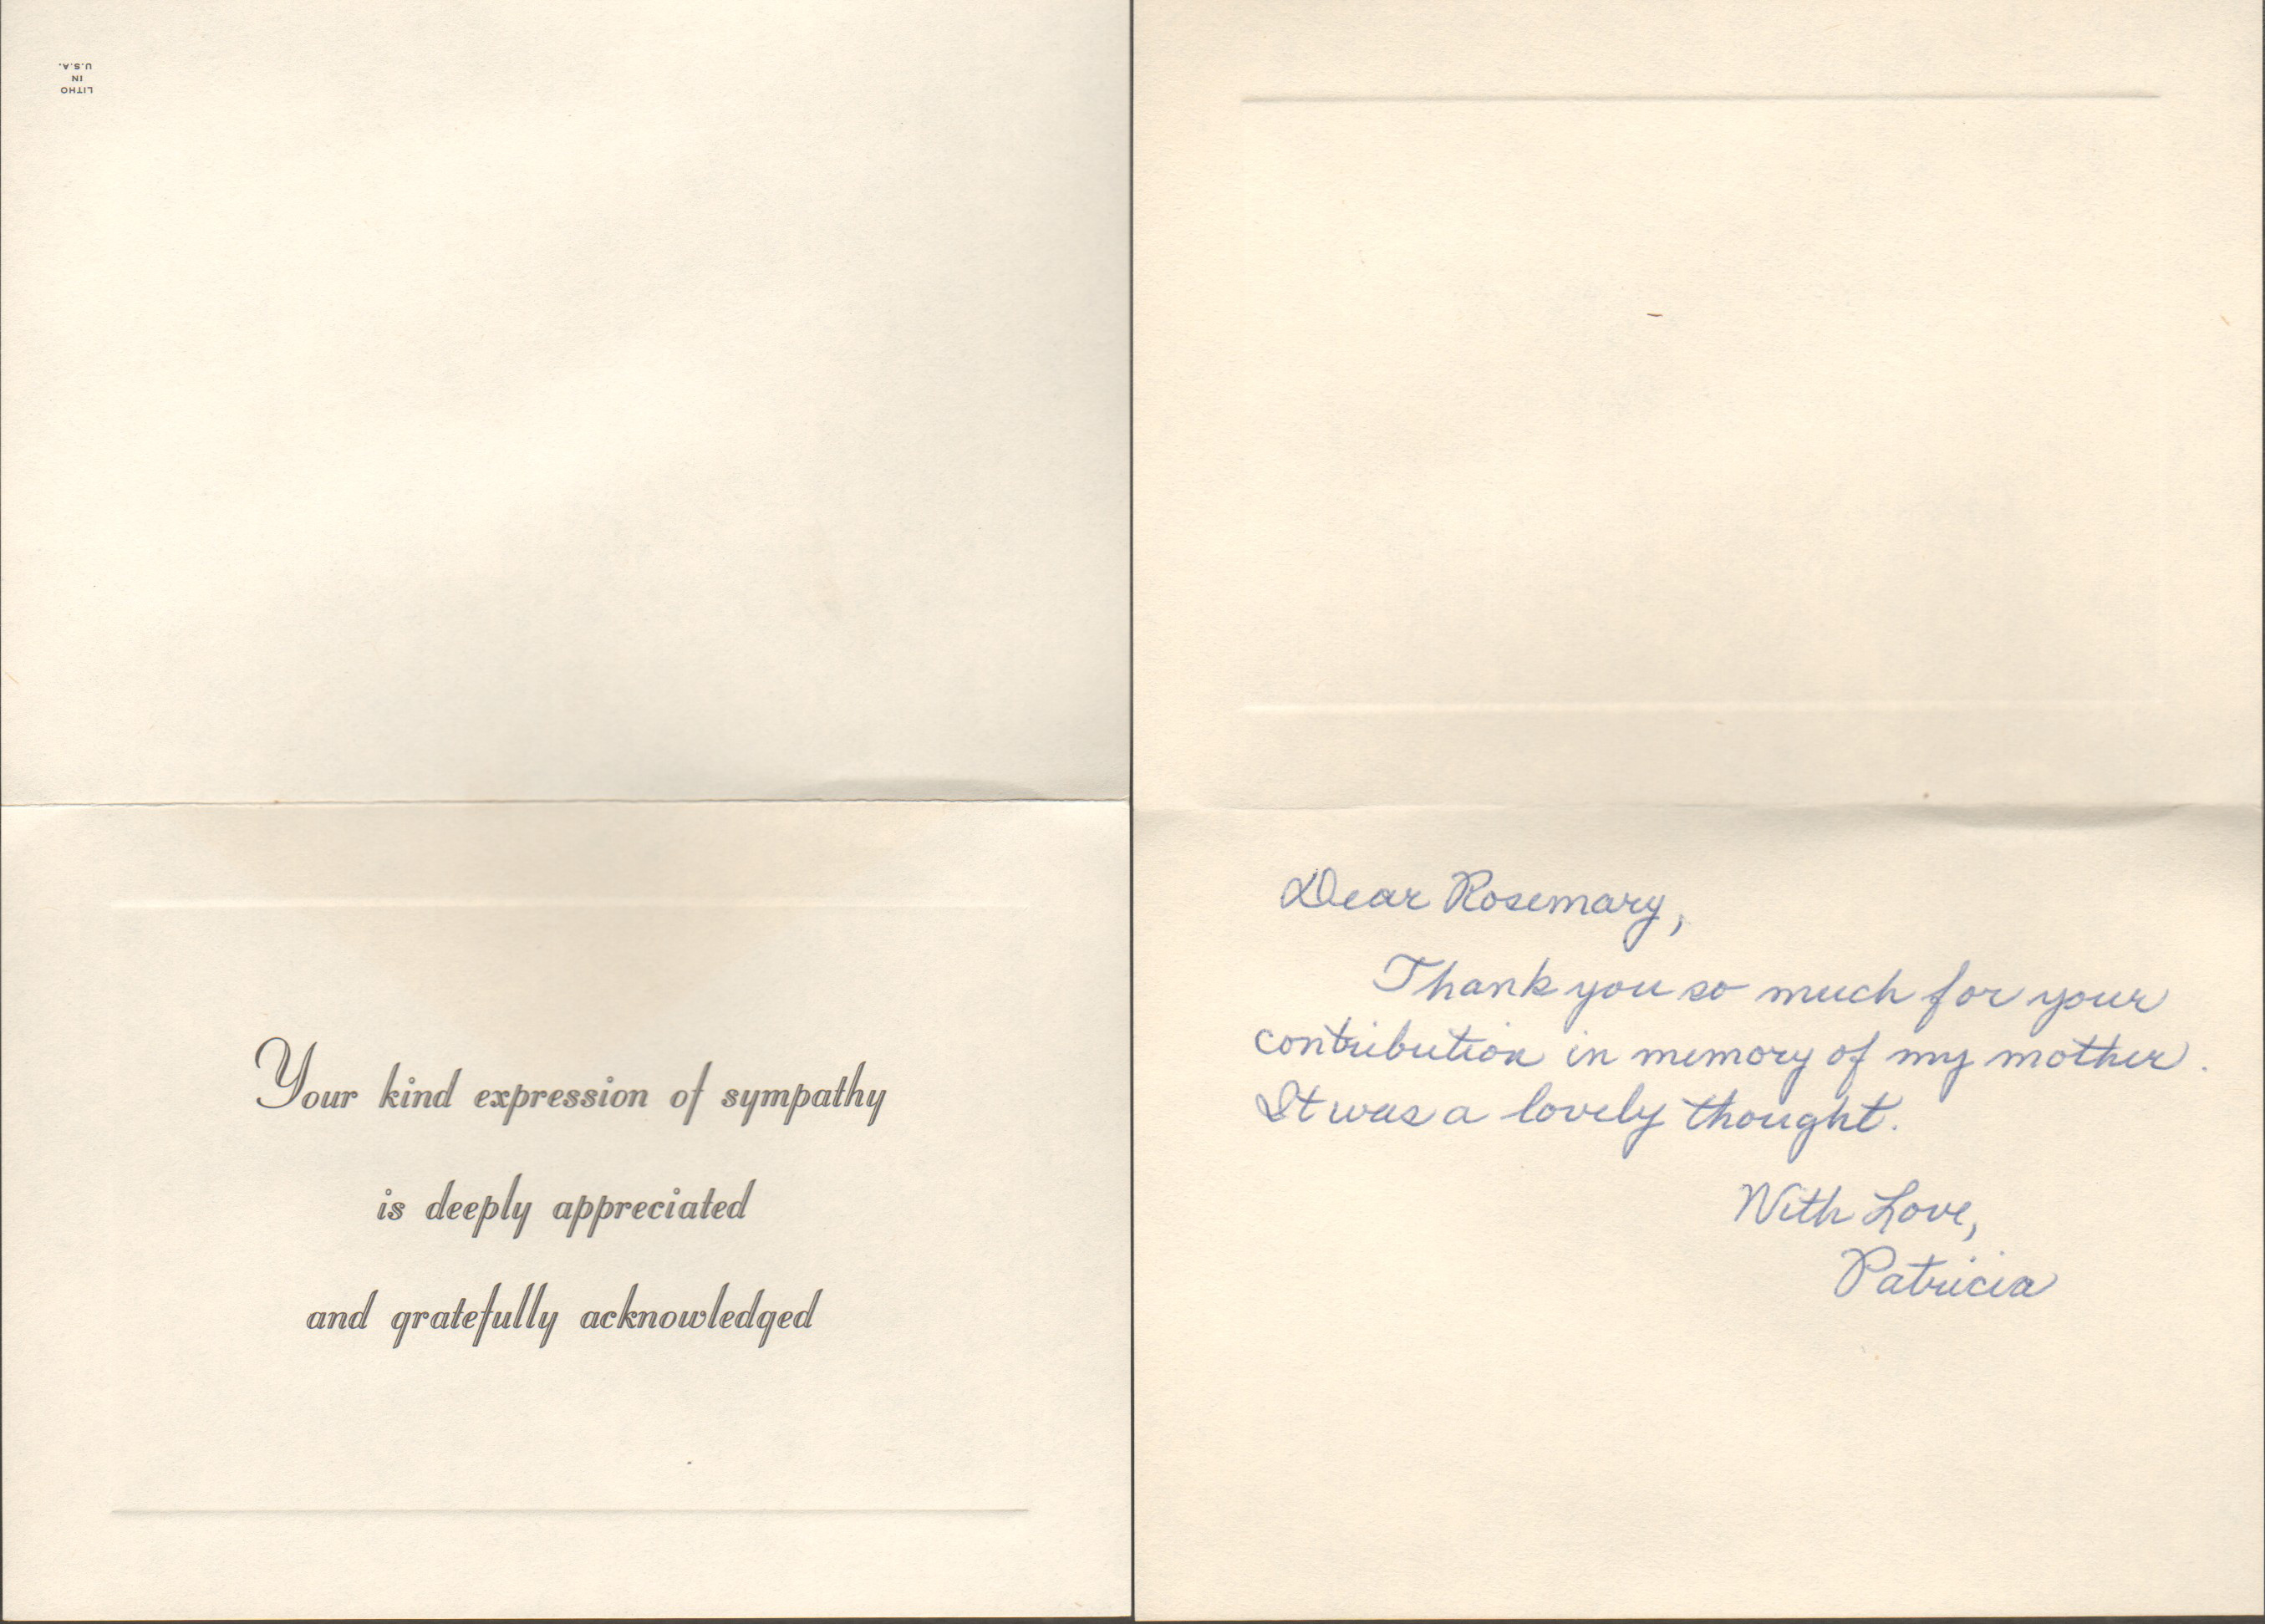 LITHO
IN
U.S.A.
Your kind expression of sympathy
is deeply appreciated
and gratefully acknowledged
Dear Rosemary,
Thank you so much for your
contribution in memory of my mother.
It was a lovely thought.
With Love,
Patricia